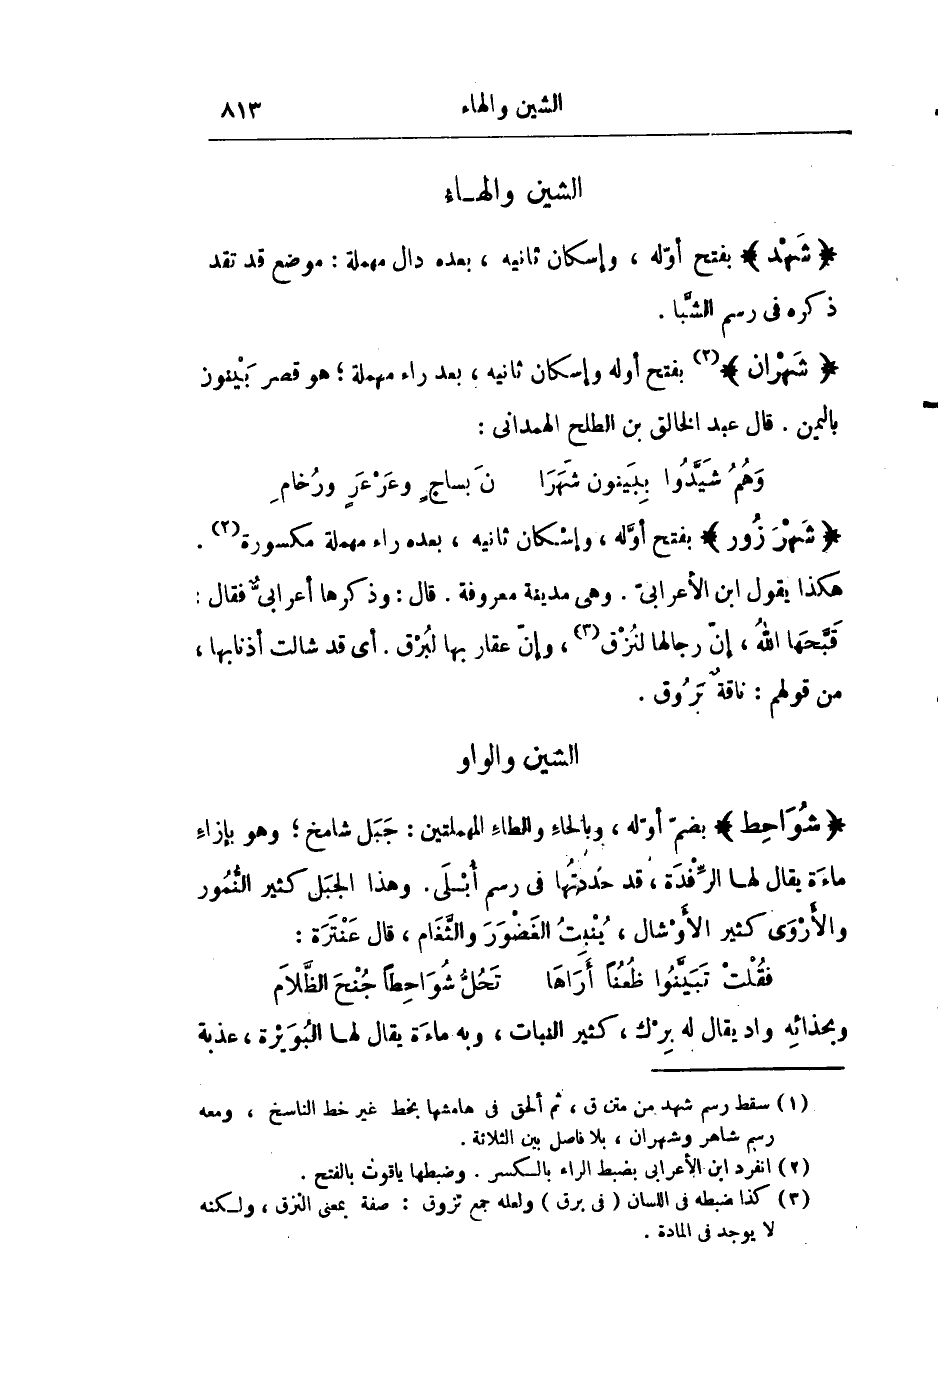 الشين والهاء ٨١٣
الشين والهاء
﴿ شَهْد ﴾ بفتح أوّله ، وإسكان ثانيه ، بعده دال مهملة : موضع قد تقد
ذكره فى رسم الشبَّا .
﴿ شَهْران ﴾(٢) بفتح أوله وإسكان ثانيه ، بعد راء مهملة ؛ هو قصر بَيْنون
باليمن . قال عبد الخالق بن الطلح الهمدانى :
وَهُمُ شَيَّدُوا بِبَينون شَهَرَا نَ بساجٍ وعَرْعَرٍ ورُخامِ
﴿ شَهْرَ زُور ﴾ بفتح أوَّله ، وإسْكان ثانيه ، بعده راء مهملة مكسورة(٢) .
هكذا يقول ابن الأعرابىّ . وهى مدينة معروفة . قال : وذكرها أعرابىٌّ فقال :
قَبَّحَهَا اللهُ ، إنّ رجالها لنُزْق(٣) ، وإنّ عقاربها لبُرْق . أى قد شالت أذنابها ،
من قولهم : ناقةٌ بَرُوق .
الشين والواو
﴿ شُوَاحِط ﴾ بضمّ أوّله ، وبالحاء والطاء المهملتين : جَبَل شامخ ؛ وهو بإزاء
ماءة يقال لها الرِّفْدَة ، قد حدَّدتُها فى رسم أُبْلَى . وهذا الجبَل كثير النُّمُور
والأَرْوَى كثير الأَوْشال ، يُنْبِتُ الغَضْوَرَ والثَّغَام ، قال عَنْتَرَة :
فقُلْتْ تَبَيَّنُوا ظُعُنًا أَرَاهَا تَحُلُّ شُوَاحِطاً جُنْحَ الظَّلاَم
وبحذائه واد يقال له بِرْك ، كثير النبات ، وبه ماءة يقال لها البُوَيْرة ، عذبة
(١) سقط رسم شهد من متن ق ، ثم ألحق فى هامشها بخط غير خط الناسخ ، ومعه
رسم شاهر وشهران ، بلا فاصل بين الثلاثة .
(٢) انفرد ابن الأعرابى بضبط الراء بالكسر . وضبطها ياقوت بالفتح .
(٣) كذا ضبطه فى اللسان ( فى برق ) ولعله جمع نزوق : صفة بمعنى النزق ، ولكنه
لا يوجد فى المادة .